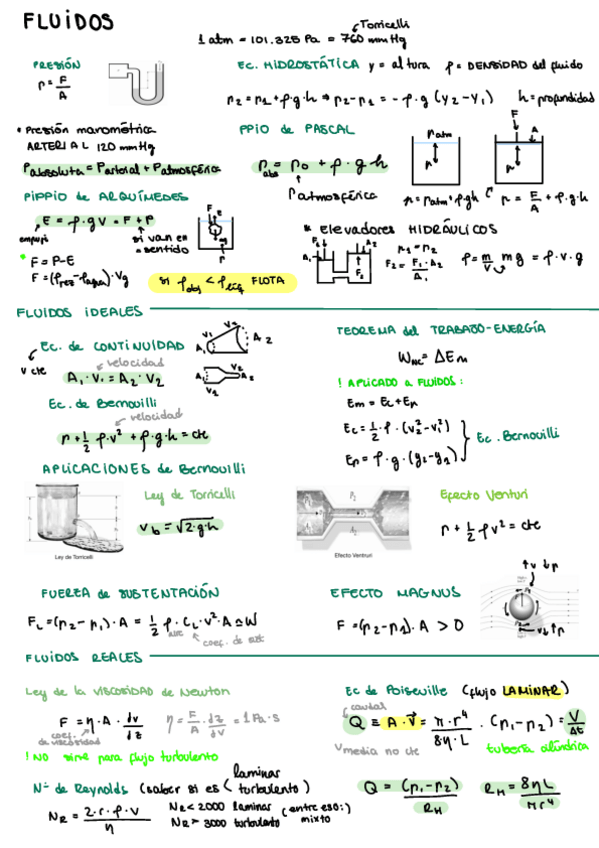 FLUIDOS
Torricelli
1 atm = 101.325 Pa = 760 mmHg
PRESIÓN
p = F/A
EC. HIDROSTÁTICA y = altura ρ = DENSIDAD del fluido
p2 = p1 + ρ·g·h ⇒ p2 - p1 = - ρ·g (y2 - y1) h = profundidad
• Presión manométrica
ARTERIAL 120 mmHg
Pabsoluta = Partorial + Patmosférica
PPIO de PASCAL
p abs = p0 + ρ·g·h
Patmosférica
Patm
p
p = Patm + ρgh
F
A
p
p = F/A + ρ·g·h
PIPPIO de ARQUÍMEDES
E = ρ·g·V = F + P
empuje
si van en = sentido
F
E
mg
P
• F = P - E
F = (ρrez - ρagua)·Vg
si ρobj < ρlíq FLOTA
* Elevadores HIDRÁULICOS
F1
A1
A2
F2
p1 = p2
F2 = F1·A2/A1
ρ = m/V mg = ρ·V·g
FLUIDOS IDEALES
Ec. de CONTINUIDAD
V cte
velocidad
A1·V1 = A2·V2
V1
V2
A1
A2
A1
A2
V2
Ec. de Bernouilli
velocidad
p + 1/2 ρ·v² + ρ·g·h = cte
TEOREMA del TRABAJO-ENERGÍA
WNC = ΔEm
! APLICADO A FLUIDOS:
Em = Ec + Ep
Ec = 1/2·ρ·(v2² - v1²)
Ep = ρ·g·(y2 - y1)
Ec. Bernouilli
APLICACIONES de Bernouilli
Ley de Torricelli
Vb = √2·g·h
Ley de Torricelli
P2
A2
Efecto Ventruri
Efecto Venturi
p + 1/2 ρv² = cte
FUERZA de SUSTENTACIÓN
FL = (p2 - p1)·A = 1/2 ρ·CL·v²·A ≃ W
aire
coef. de sust
EFECTO MAGNUS
F = (p2 - p1)·A > 0
↑v ↓p
v↓ ↑p
FLUIDOS REALES
Ley de la VISCOSIDAD de Newton
F = η·A·dv/dz
coef. de viscosidad
η = F/A·dz/dv = 1 Pa·s
! NO sirve para flujo turbulento
Ec de Poiseuille (flujo LAMINAR)
caudal
Q ≡ A·V = π·r⁴/8η·L·(p1 - p2) = V/Δt
Vmedia no cte
tubería cilíndrica
Nº de Reynolds (saber si es < laminar turbulento)
NR = 2·r·ρ·v/η
NR < 2000 laminar
NR > 3000 turbulento
(entre eso:) mixto
Q = (p1 - p2)/RH
RH = 8ηL/πr⁴